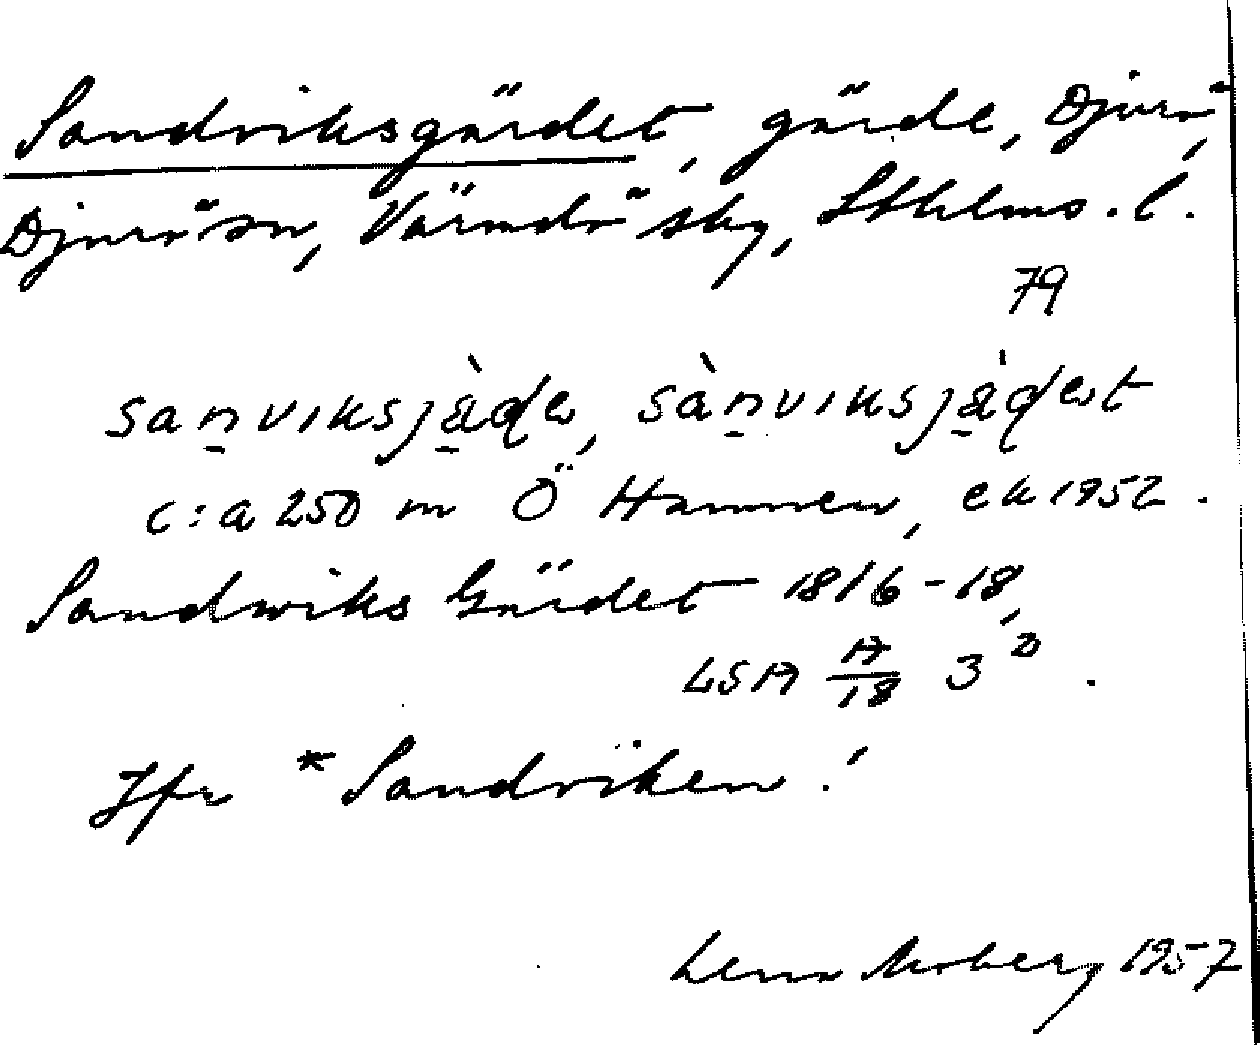 Sandviksgärdet, gärde, Djurö,
Djurö sn, Värmdö skg, Sthlms. l.
79
sanviksjàde, sànviksjàdet
c:a 250 m Ö Hamnen, ek 1952.
Sandwiks Gärdet 1816-18,
LSA A/18 3²
Jfr *Sandviken!
Lena Moberg 1957